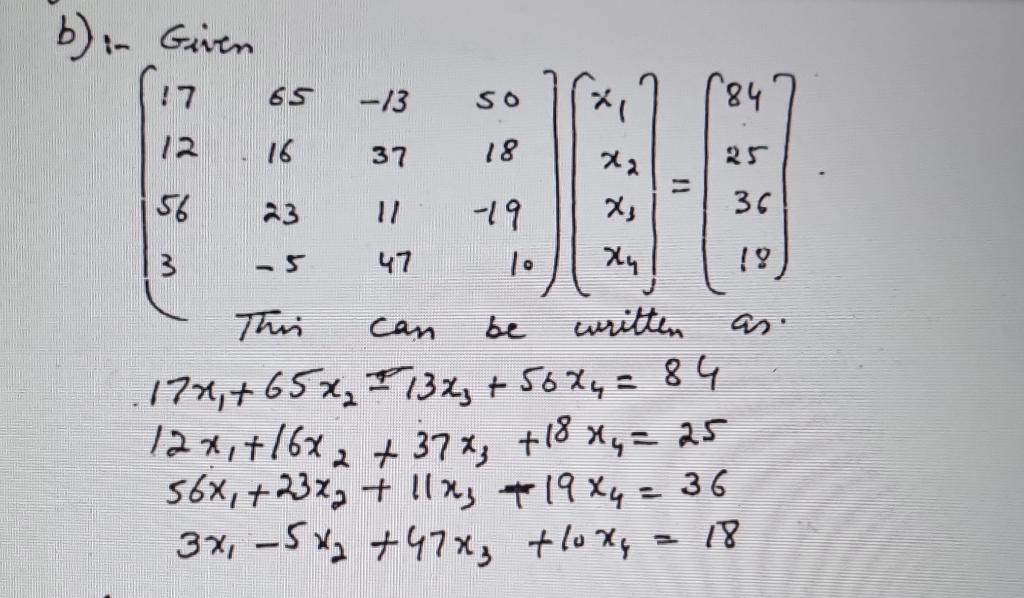 b):- Given
17 65 -13 50 x1 84
12 16 37 18 x2 = 25 .
56 23 11 -19 x3 36
3 -5 47 10 x4 18
This can be written as.
17x1 + 65x2 - 13x3 + 50x4 = 84
12x1 + 16x2 + 37x3 + 18x4 = 25
56x1 + 23x2 + 11x3 - 19x4 = 36
3x1 - 5x2 + 47x3 + 10x4 = 18